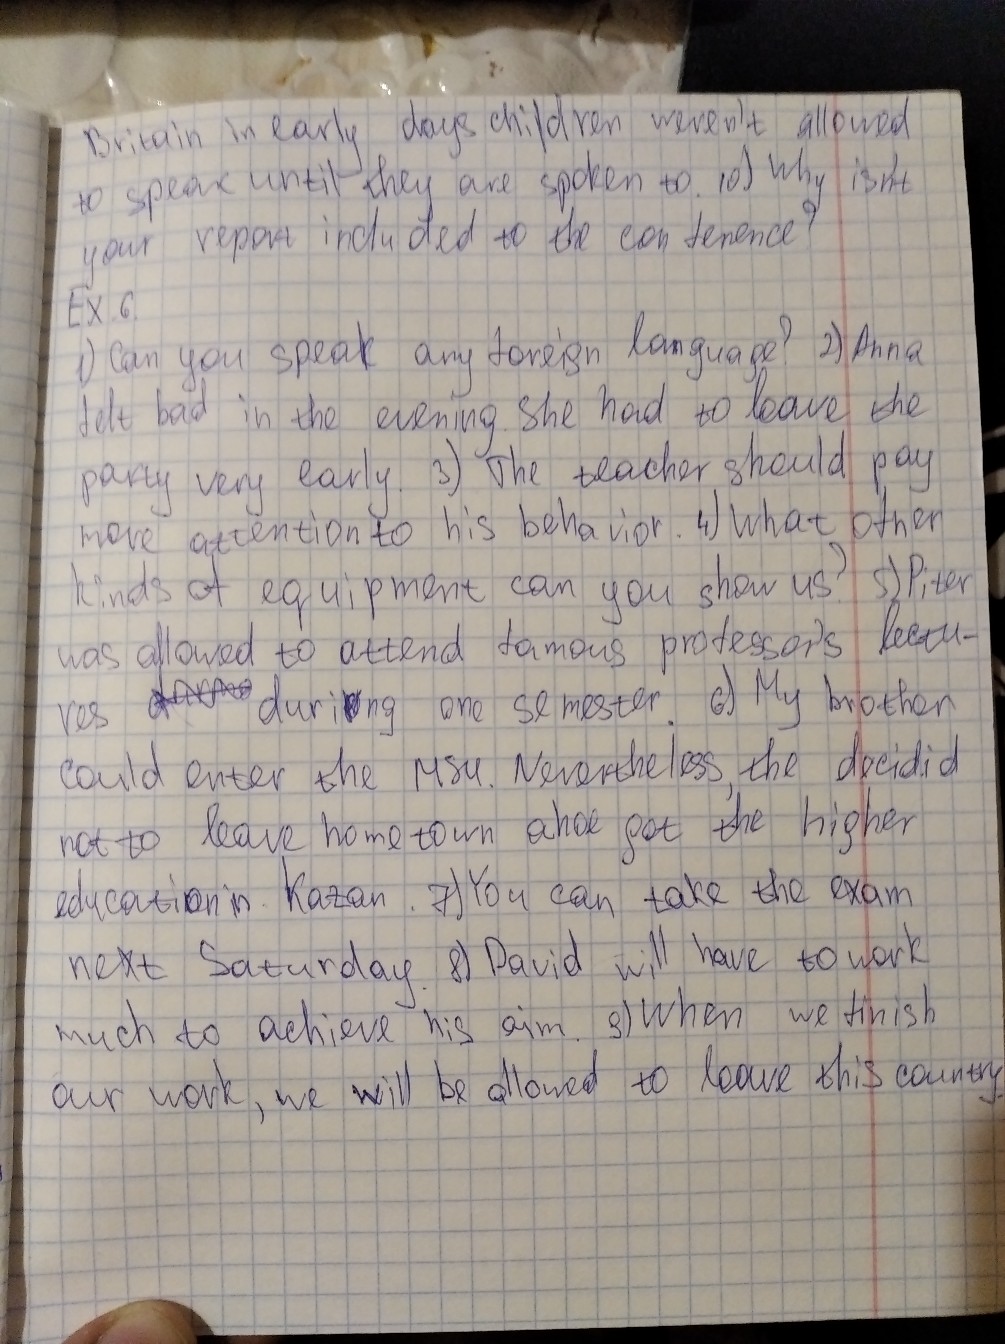 Britain in early days children weren't allowed
to speak until they are spoken to. 10) Why isn't
your report included to the conference?
Ex. 6.
1) Can you speak any foreign language? 2) Anna
felt bad in the evening. She had to leave the
party very early. 3) The teacher should pay
more attention to his behavior. 4) What other
kinds of equipment can you show us? 5) Piter
was allowed to attend famous professor's lectu-
res during one semester. 6) My brother
could enter the MSU. Nevertheless, he decidid
not to leave hometown got the higher
education in Kazan. 7) You can take the exam
next Saturday. 8) David will have to work
much to achieve his aim. 9) When we finish
our work, we will be allowed to leave this country.